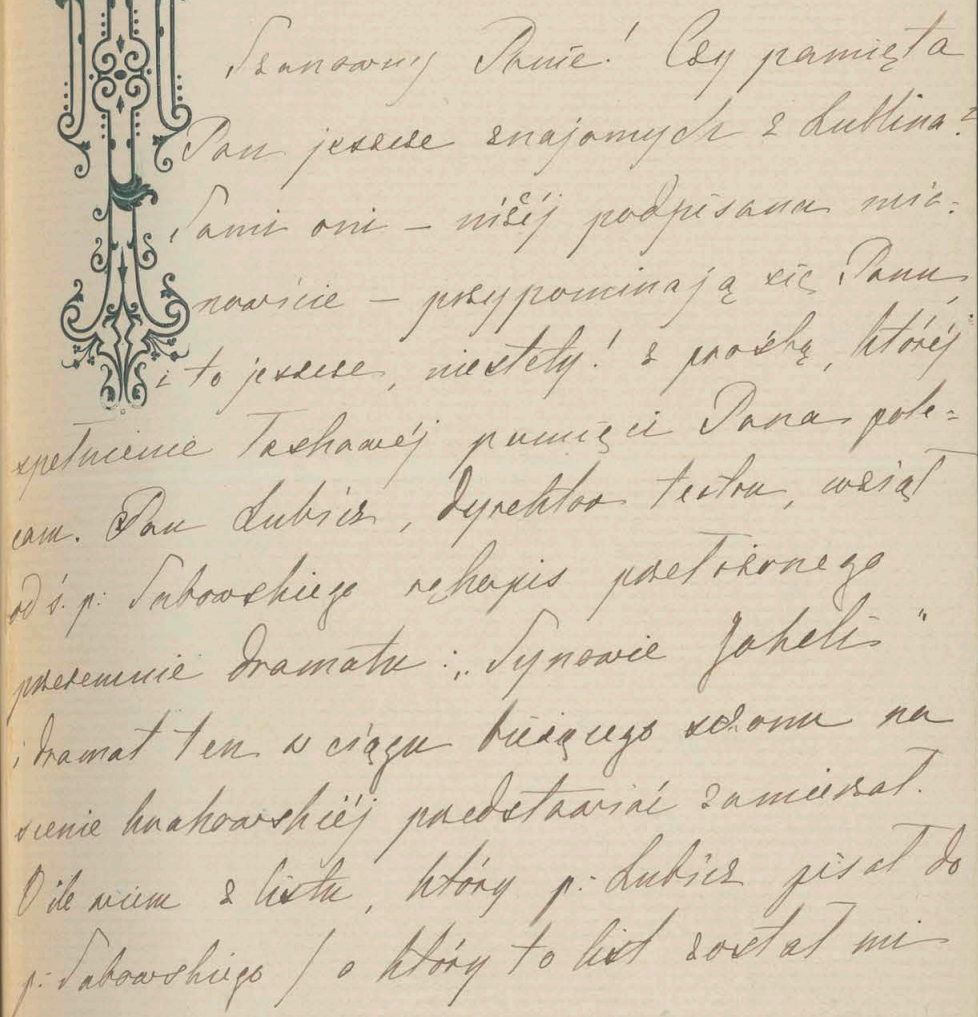 Szanowny Panie! Czy pamięta
Pan jeszcze znajomych z Lublina?
Sami oni – niżéj podpisana mia=
nowicie – przypominają się Panu,
i to jeszcze, niestety! z prośbą, któréj
spełnienie łaskawéj pamięci Pana pole=
cam. Pan Lubicz, dyrektor teatru, wziął
od ś. p: Sabowskiego rękopis przełożonego
przezemnie dramatu: „Synowie Jaheli"
i dramat ten w ciągu bieżącego sezonu na
scenie krakowskiéj przedstawiać zamierzał.
O ile wiem z listu, który p: Lubicz pisał do
p: Sabowskiego / a który to list został mi